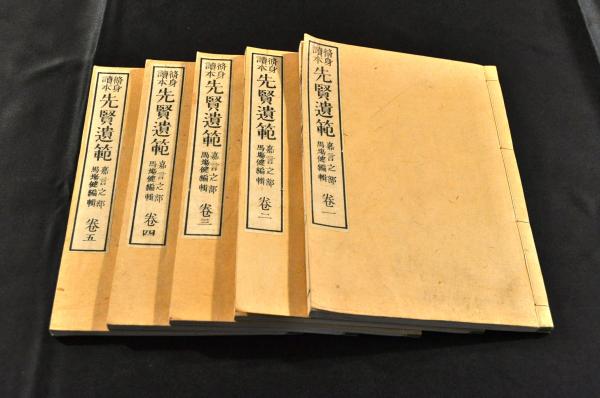 脩身
讀本
先賢遺範
嘉言之部
馬塲健編輯
卷一
脩身
讀本
先賢遺範
嘉言之部
馬塲健編輯
卷二
脩身
讀本
先賢遺範
嘉言之部
馬塲健編輯
卷三
脩身
讀本
先賢遺範
嘉言之部
馬塲健編輯
卷四
脩身
讀本
先賢遺範
嘉言之部
馬塲健編輯
卷五